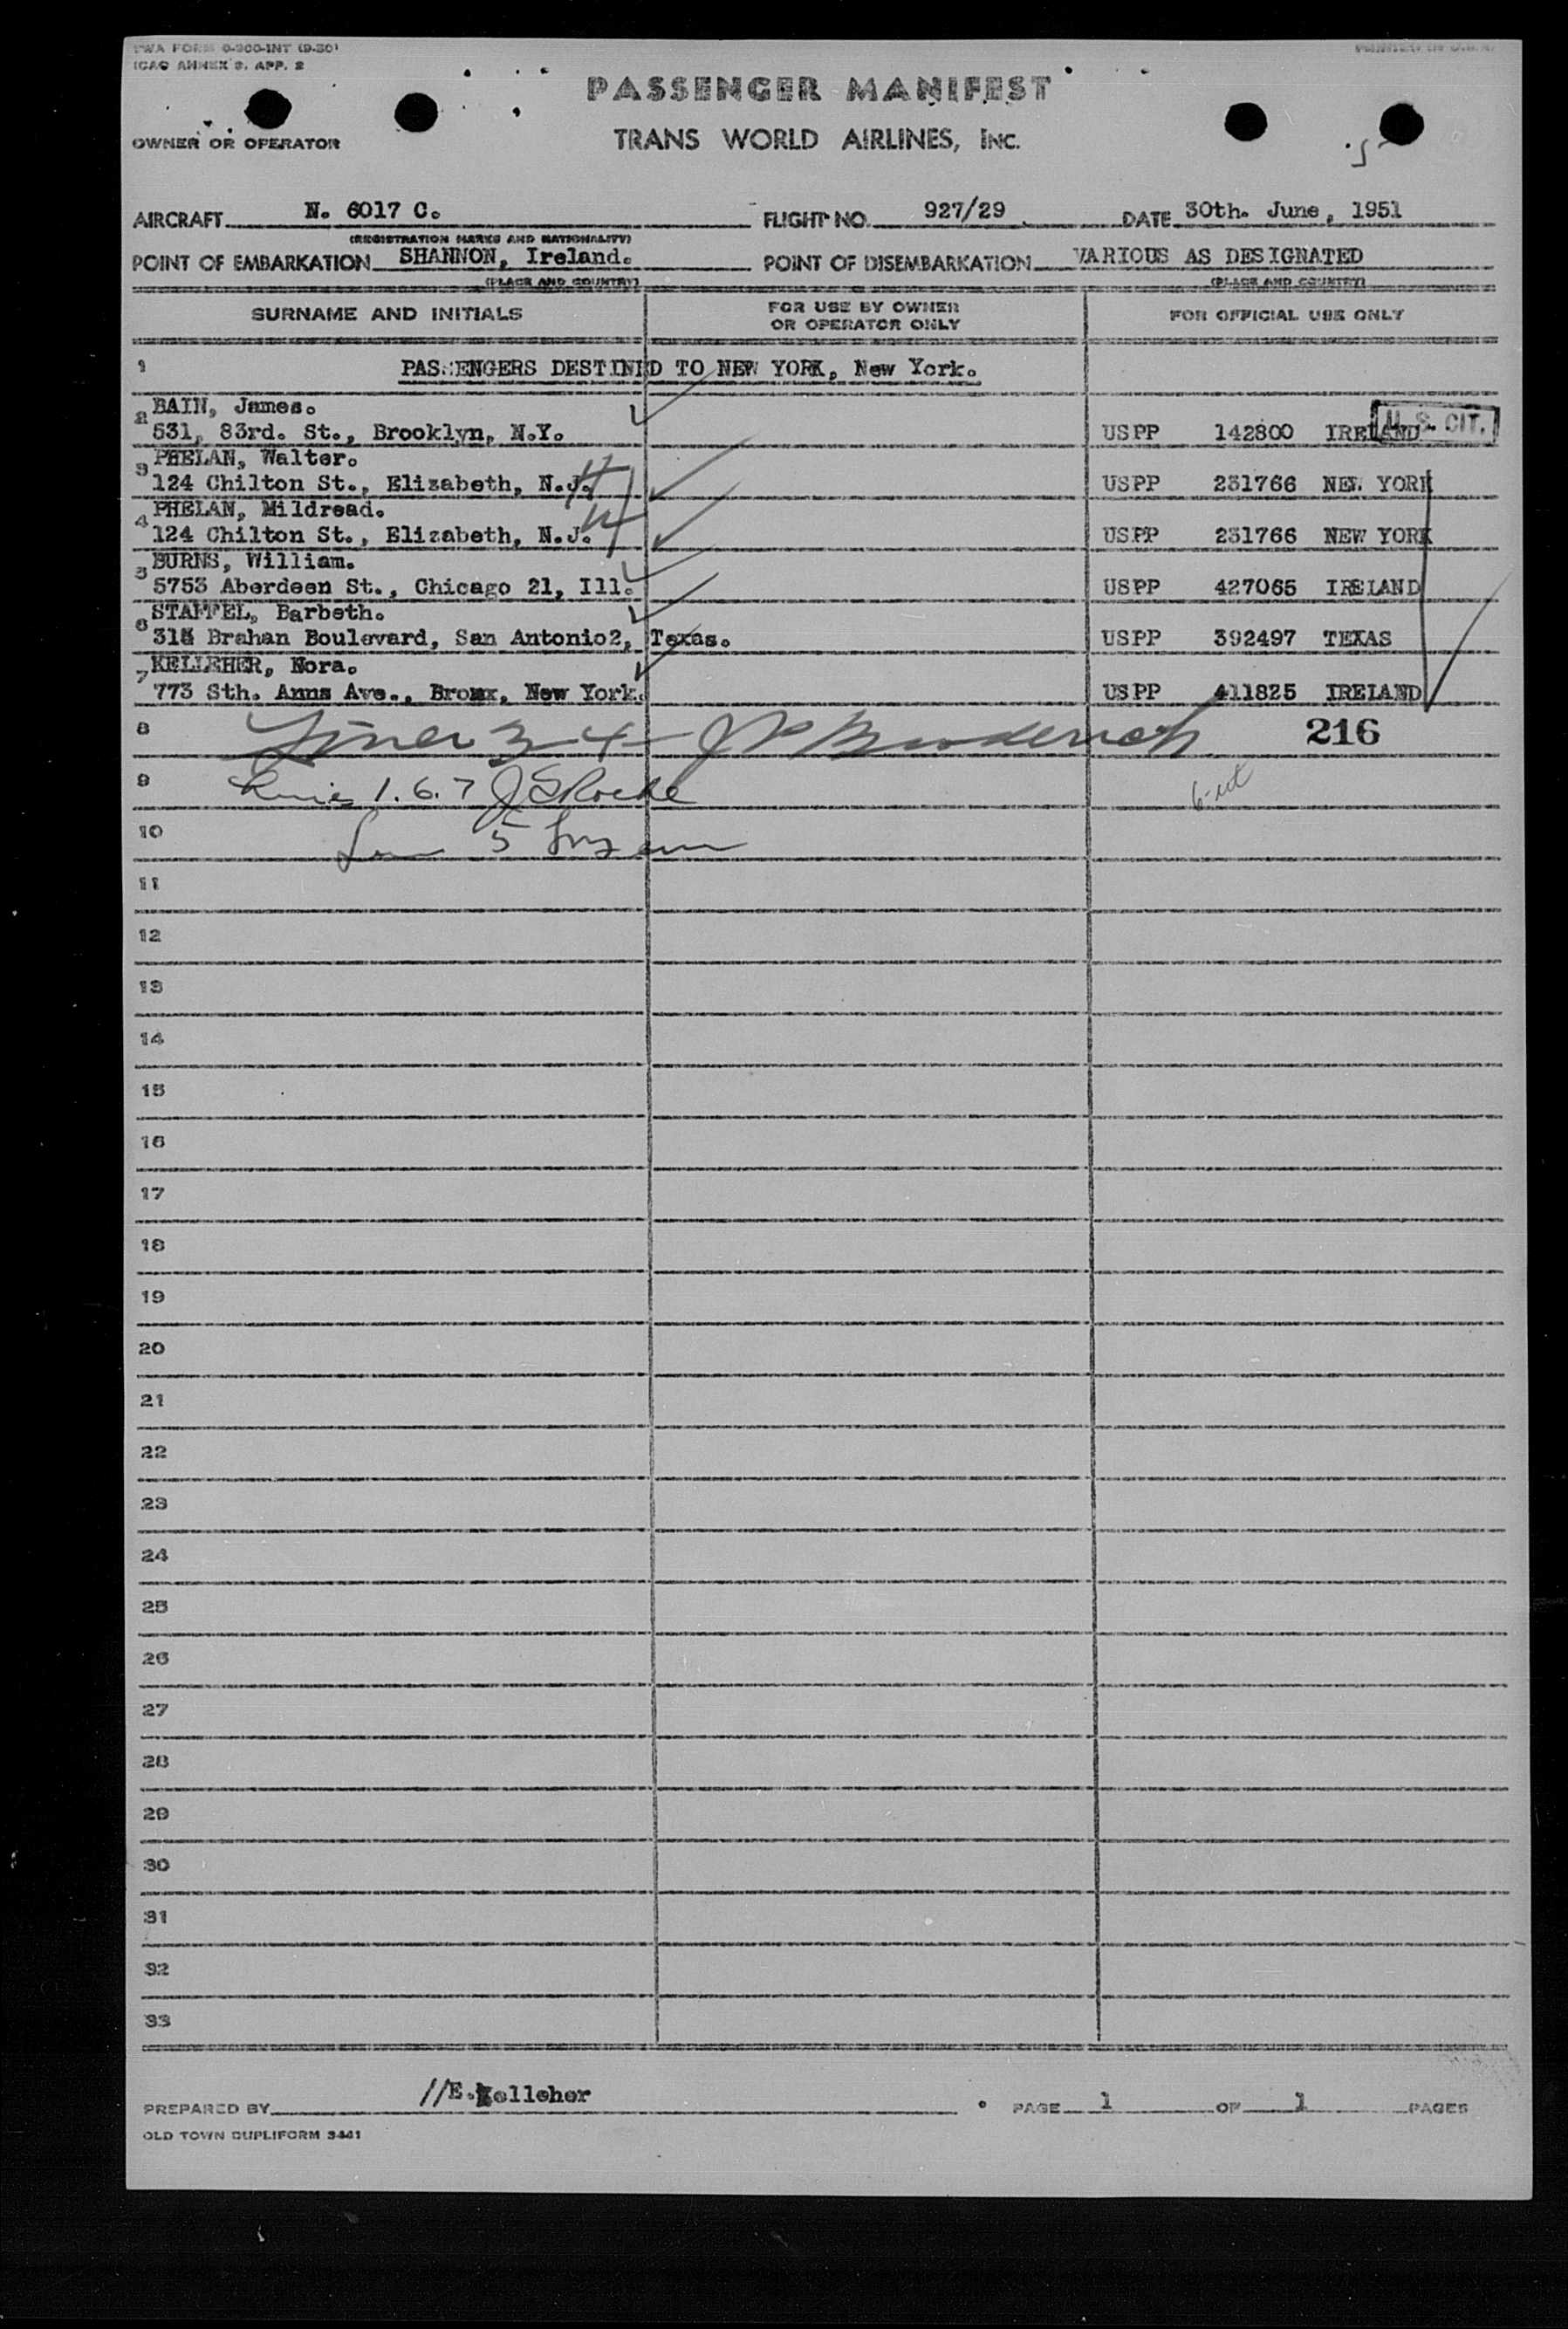 TWA FORM 0-300-INT (9-50)
ICAO ANNEX 9, APP. 2
PRINTED IN U.S.A.
PASSENGER MANIFEST
OWNER OR OPERATOR
TRANS WORLD AIRLINES, Inc.
AIRCRAFT N. 6017 C. FLIGHT NO. 927/29 DATE 30th. June, 1951
(REGISTRATION MARKS AND NATIONALITY)
POINT OF EMBARKATION SHANNON, Ireland. POINT OF DISEMBARKATION VARIOUS AS DESIGNATED
(PLACE AND COUNTRY) (PLACE AND COUNTRY)
SURNAME AND INITIALS FOR USE BY OWNER OR OPERATOR ONLY FOR OFFICIAL USE ONLY
1 PASSENGERS DESTINED TO NEW YORK, New York.
2 BAIN, James.
531, 83rd. St., Brooklyn, N.Y. USPP 142800 IRELAND U.S. CIT.
3 PHELAN, Walter.
124 Chilton St., Elizabeth, N.J. USPP 231766 NEW YORK
4 PHELAN, Mildread.
124 Chilton St., Elizabeth, N.J. USPP 231766 NEW YORK
5 BURNS, William.
5753 Aberdeen St., Chicago 21, Ill. USPP 427065 IRELAND
6 STAFFEL, Barbeth.
315 Brahan Boulevard, San Antonio2, Texas. USPP 392497 TEXAS
7 KELLEHER, Nora.
773 Sth. Anns Ave., Bronx, New York. USPP 411825 IRELAND
8 Lines 3 4 J P Broderick 216
9 Lines 1. 6. 7
10 5
11
12
13
14
15
16
17
18
19
20
21
22
23
24
25
26
27
28
29
30
31
32
33
PREPARED BY //E.Kelleher PAGE 1 OF 1 PAGES
OLD TOWN DUPLIFORM 3441